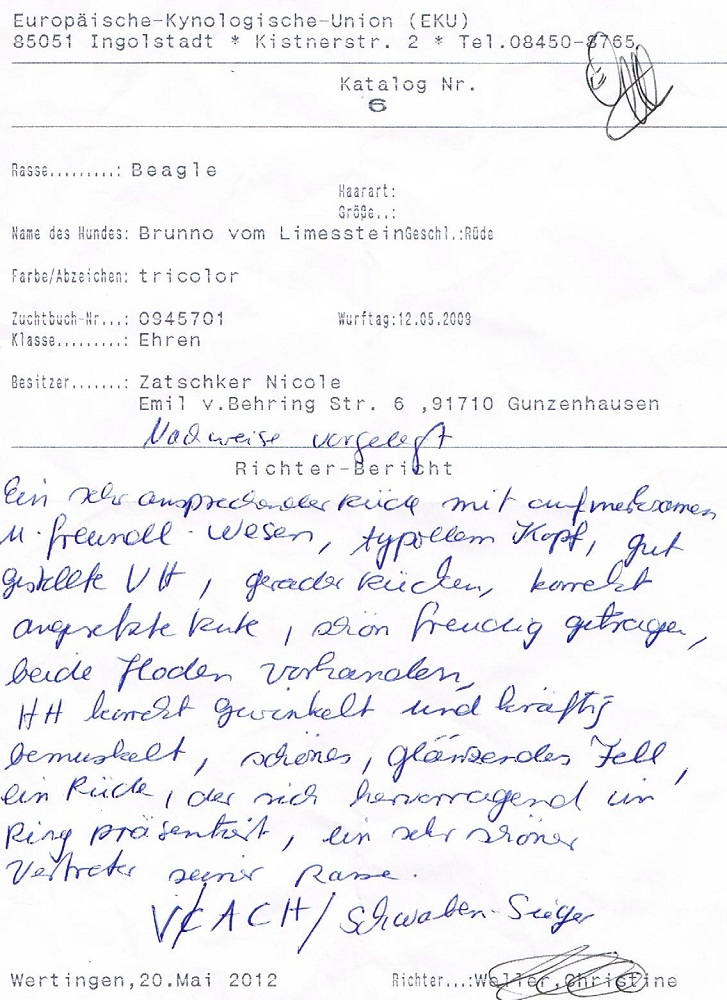 Europäische-Kynologische-Union (EKU)
85051 Ingolstadt * Kistnerstr. 2 * Tel.08450-8765
Katalog Nr.
6
Rasse.........: Beagle
Haarart:
Größe..:
Name des Hundes: Brunno vom LimessteinGeschl.:Rüde
Farbe/Abzeichen: tricolor
Zuchtbuch-Nr...: 0945701 Wurftag:12.05.2009
Klasse.........: Ehren
Besitzer.......: Zatschker Nicole
Emil v.Behring Str. 6 ,91710 Gunzenhausen
Nachweise vorgelegt
Richter-Bericht
Ein sehr ansprechender Rüde mit aufmerksamen
u. freundl. Wesen, typvollem Kopf, gut
gestellte VH, gerader Rücken, korrekt
angesetzte Rute, schön freudig getragen,
beide Hoden vorhanden,
HH korrekt gewinkelt und kräftig
bemuskelt, schönes, glänzendes Fell,
ein Rüde, der sich hervorragend im
Ring präsentiert, ein sehr schöner
Vertreter seiner Rasse.
ACH / Schwaben-Sieger
Wertingen,20.Mai 2012 Richter...:Weller,Christine